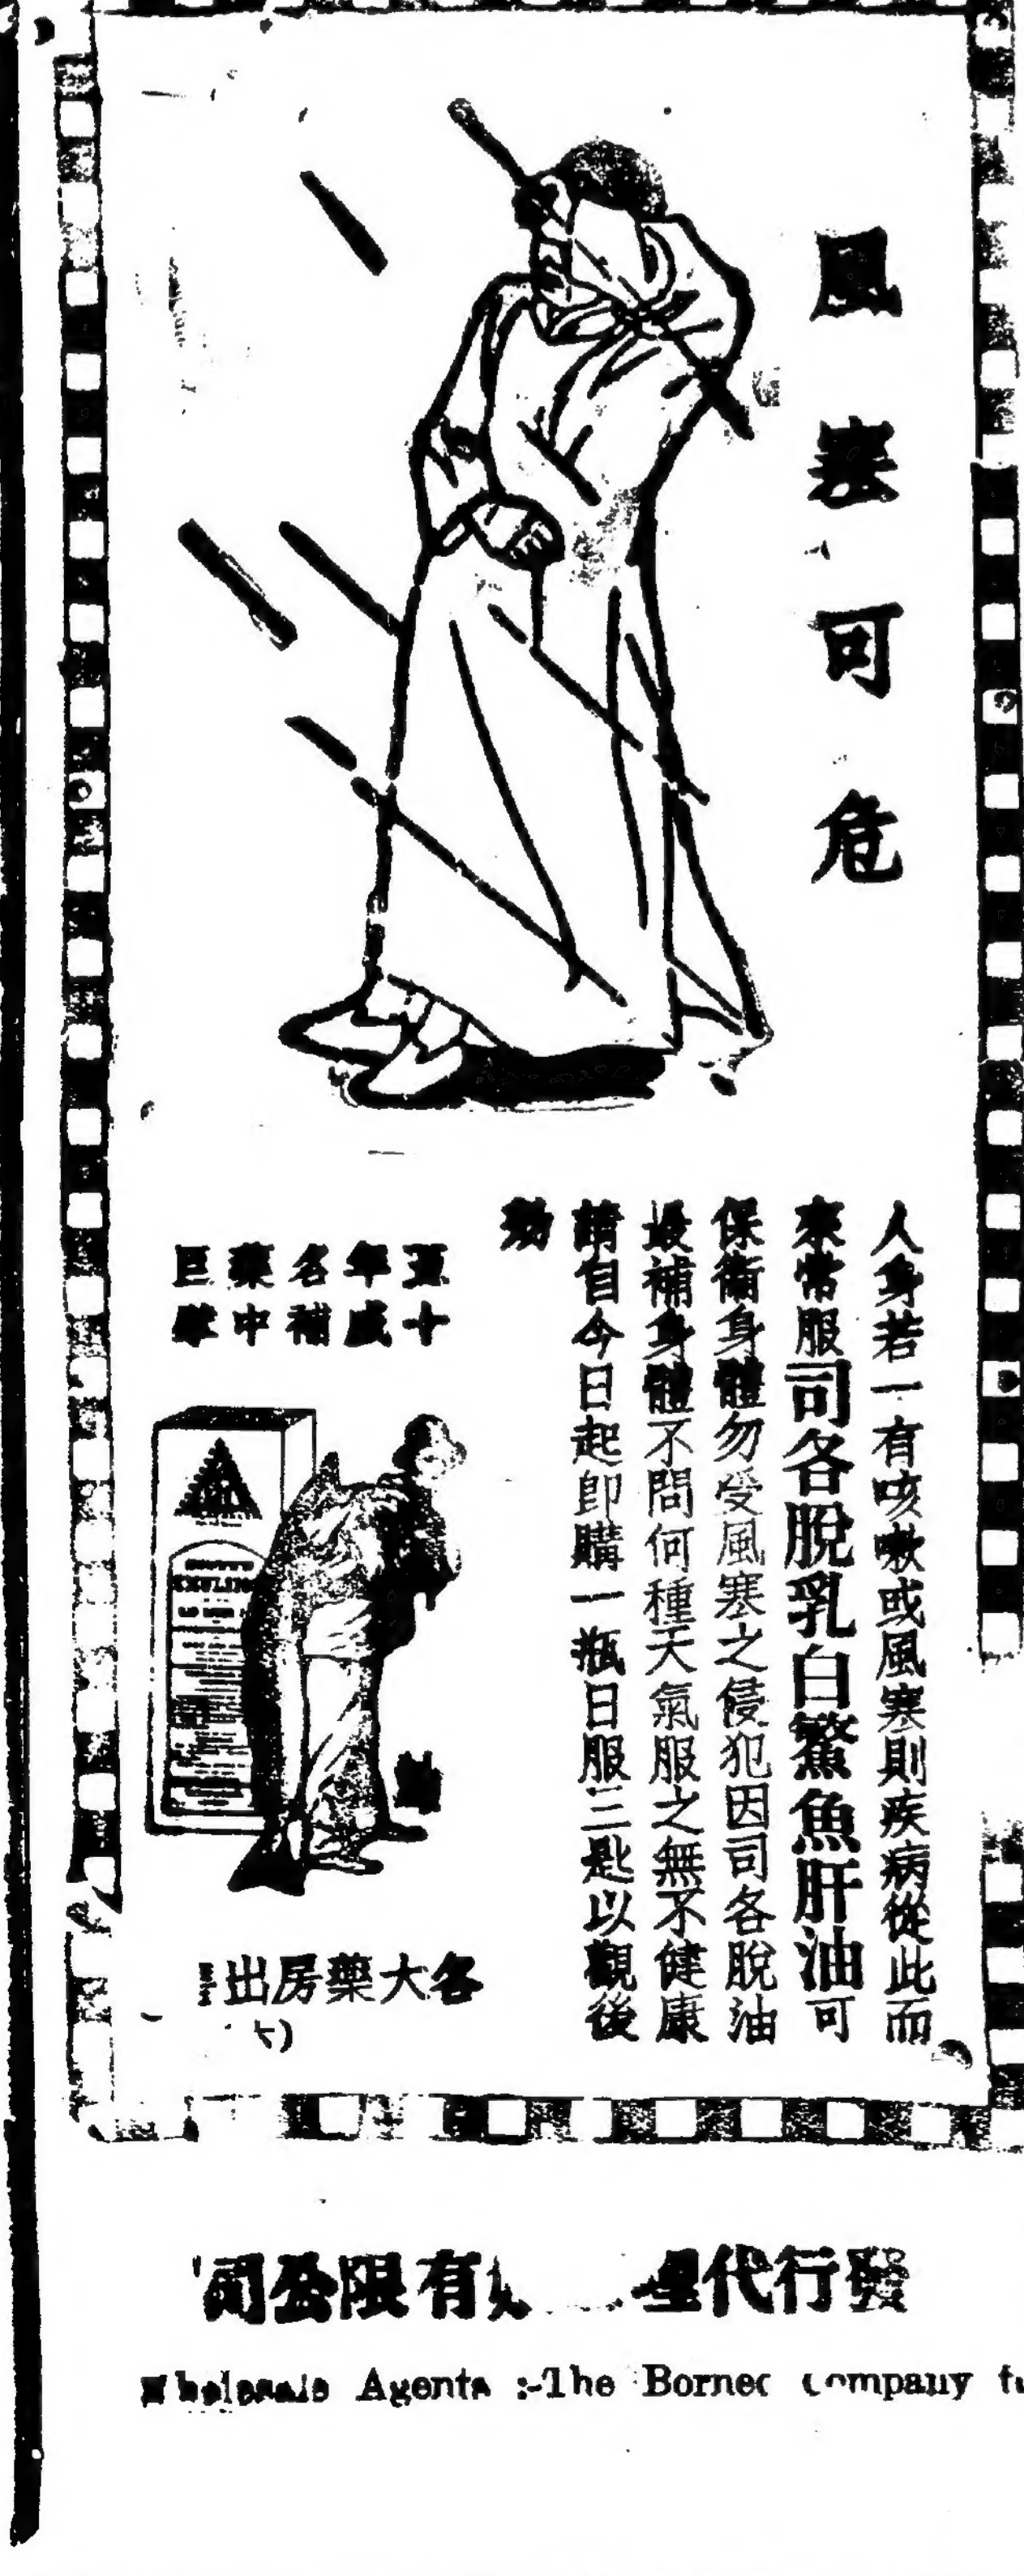 風寒可危
人身若一有咳嗽或風寒則疾病從此而
來常服司各脫乳白鰵魚肝油可
保衛身體勿受風寒之侵犯因司各脫油
最補身體不問何種天氣服之無不健康
請自今日起卽購一瓶日服三匙以觀後
効
五十
年威
名補
藥中
巨擘
各大藥房出
發行代理 有限公司
Wholesale Agents :-The Borneo Company